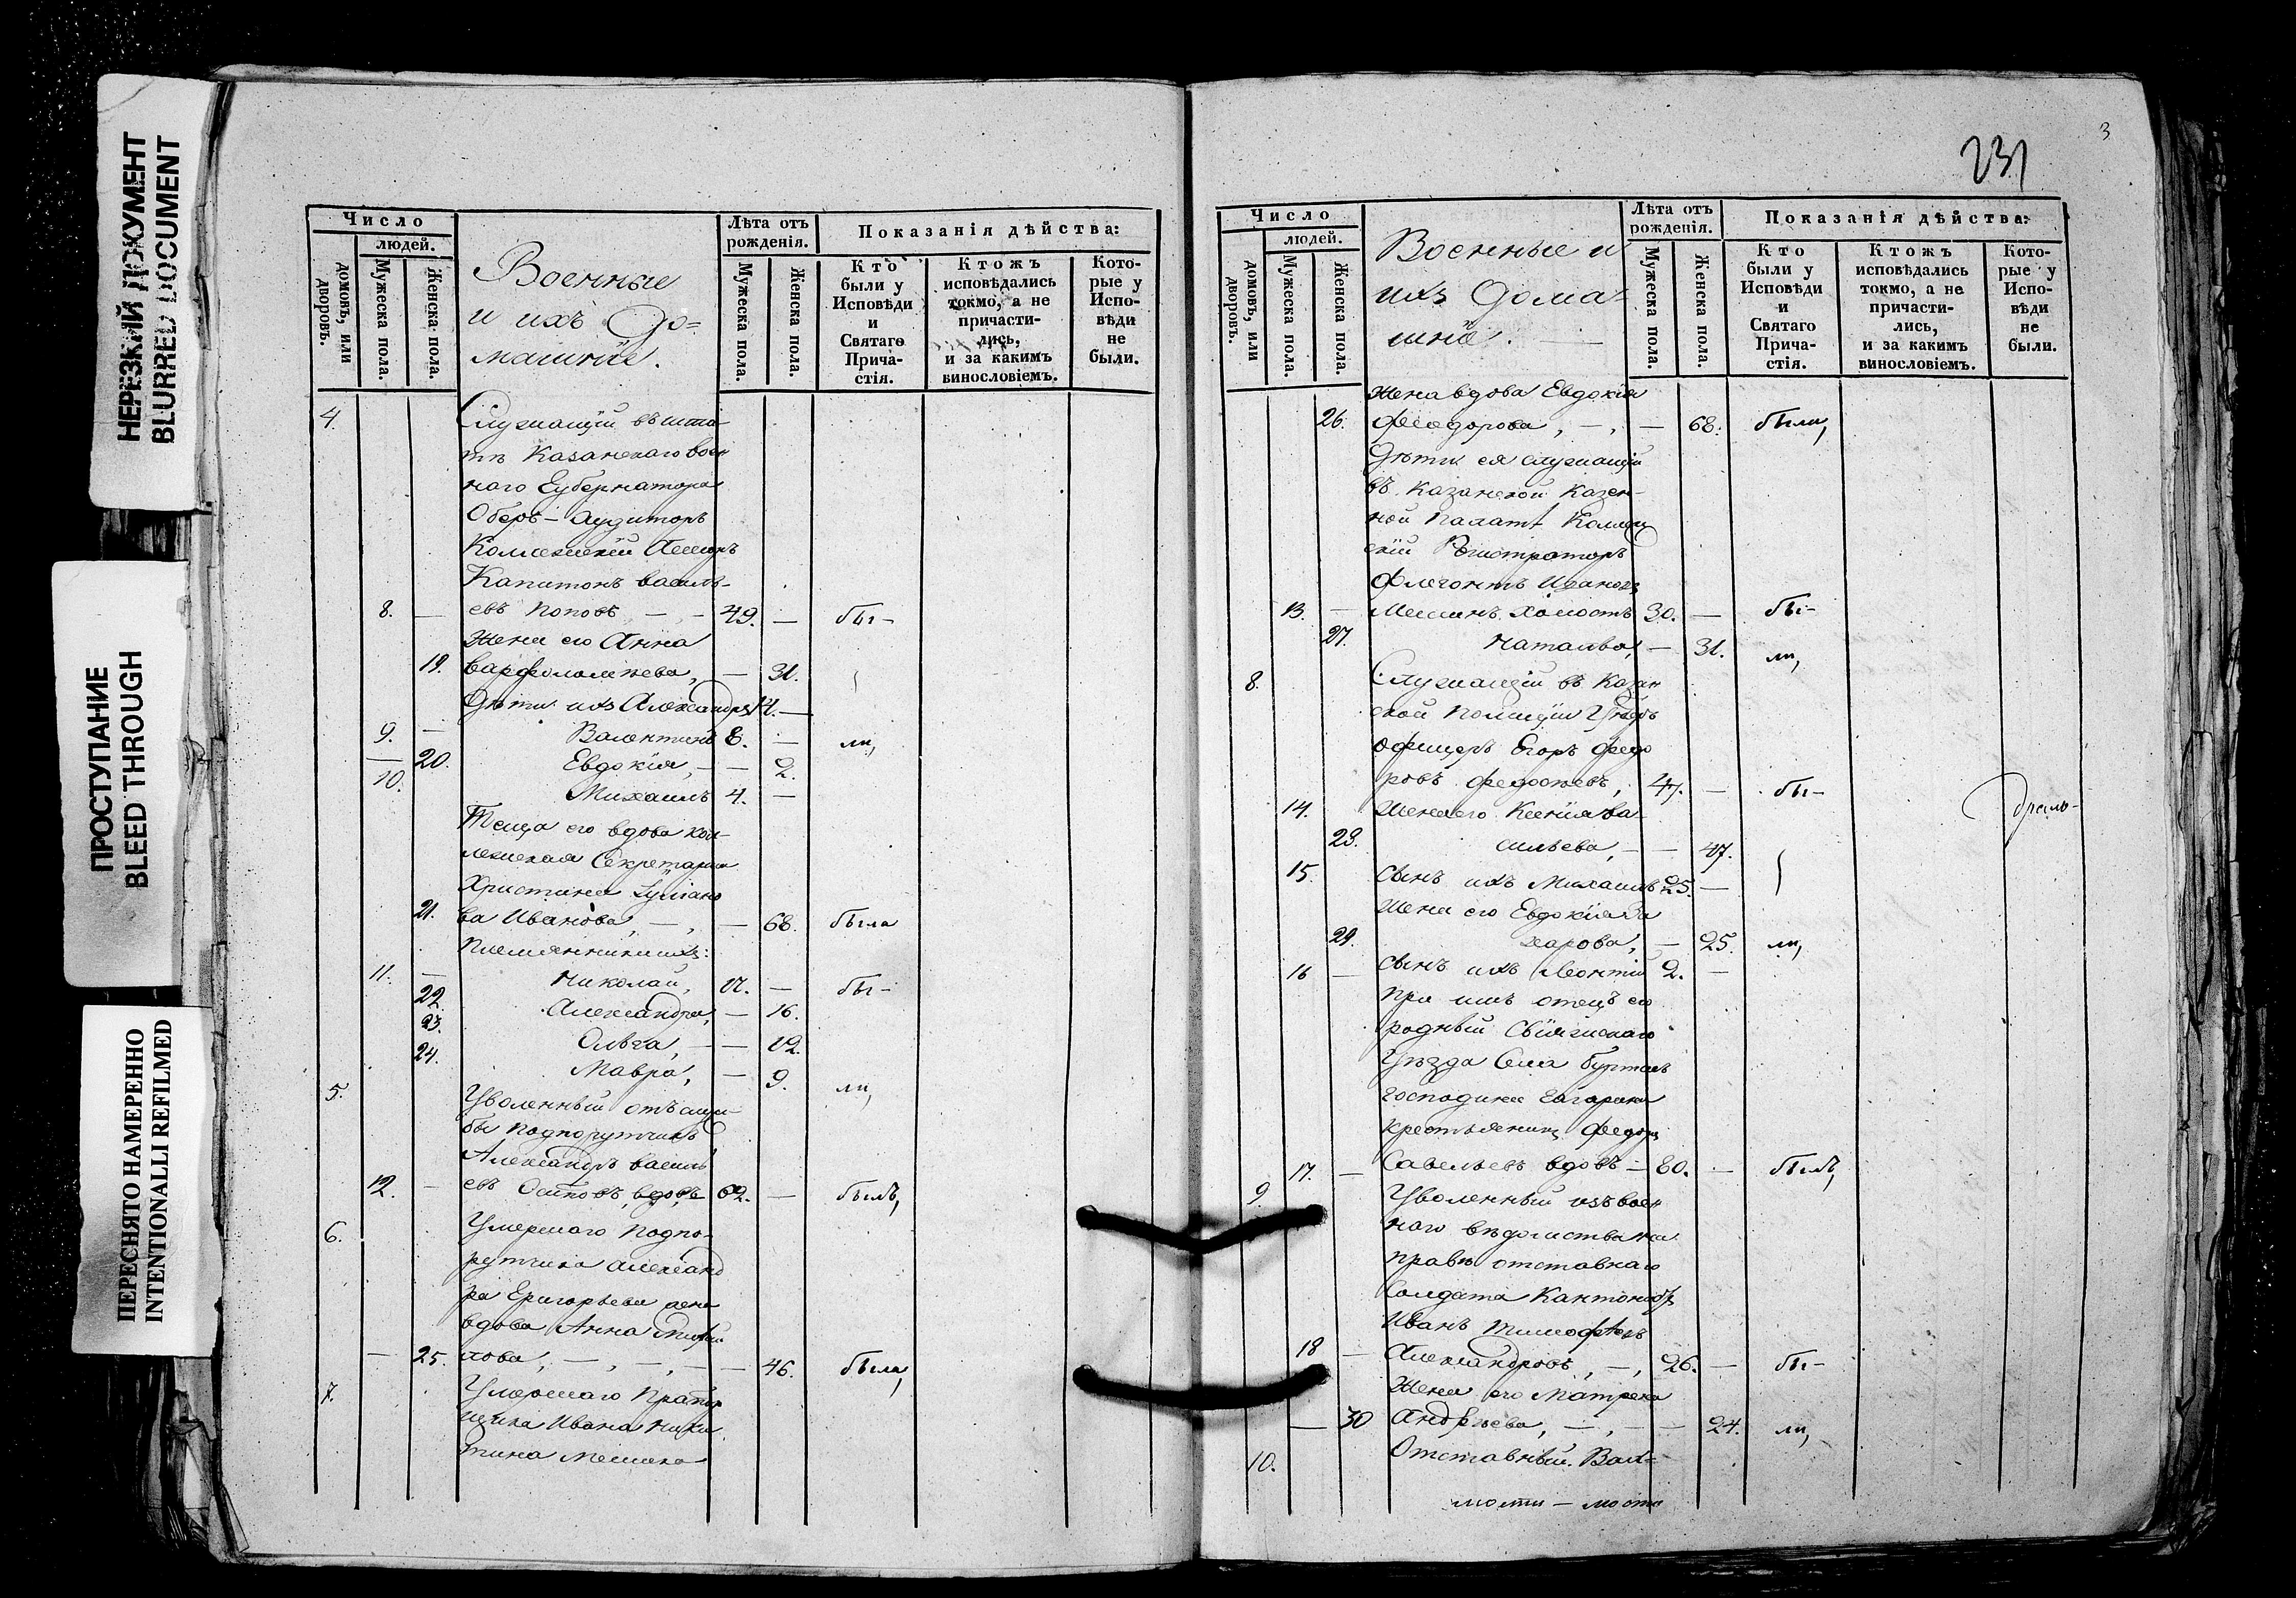 НЕРЕЗКИЙ ДОКУМЕНТ
BLURRED DOCUMENT
ПРОСТУПАНИЕ
BLEED THROUGH
ПЕРЕСНЯТО НАМЕРЕННО
INTENTIONALLI REFILMED
Число
людей.
домовъ, или дворовъ.
Мужеска пола.
Женска пола.
Военные
и ихъ До=
машніе.
Лѣта отъ рожденія.
Мужеска пола.
Женска пола.
Показанія дѣйства:
Кто были у Исповѣди и Святаго Прича- стія.
Ктожъ исповѣдались токмо, а не причасти- лись, и за какимъ винословіемъ.
Кото- рые у Испо- вѣди не были.
4. Служащій въ шта-
тѣ Казанскаго воен
наго Губернатора
Оберъ-Аудиторъ
Коллежскій Ассесоръ
Капитонъ Василь-
8. — евъ Поповъ, — - 49. — бы-
Жена его Анна
19. Варфоломѣева, — 31.
Дѣти ихъ Александръ 14. —
9. — Валентинъ 8. — ли,
20. Евдокія, — — 2.
10. Михаилъ 4. —
Теща его вдова кол-
лежская Секретарша
Христина
21. ва Иванова, — , — 68. была
Племянники ихъ:
11. — Николай, 17. — бы-
22. Александра, — 16.
23. Ольга, — — 12.
24. Мавра, — 9. ли,
5. Уволенный отъ служ-
бы Подпорутчикъ
Александръ Василь
12. — евъ Осиповъ, вдовъ 62. — былъ,
6. Умершаго Подпо-
рутчика Александ
ра Григорьева жена
вдова Анна
— 25. лова, — , — , — — 46. была,
7. Умершаго Прапор
щика Ивана Ники
тина Мешина
3
231
Число
людей.
домовъ, или дворовъ.
Мужеска пола.
Женска пола.
Военные и
ихъ Дома=
шніе.
Лѣта отъ рожденія.
Мужеска пола.
Женска пола.
Показанія дѣйства:
Кто были у Исповѣди и Святаго Прича- стія.
Ктожъ исповѣдались токмо, а не причасти- лись, и за какимъ винословіемъ.
Кото- рые у Испо- вѣди не были.
жена вдова Евдокія
26. Феодорова, — , — 68. были,
Дѣти ея служащій
въ Казанской Казен-
ной Палатѣ Коллеж
скій Регистраторъ
Флегонтъ Ивановъ
13. — Мешинъ холостъ 30. — бы-
27. Наталья, — 31. ли,
8. Служащій въ Казан
ской Полиціи Унтеръ
офицеръ Егоръ Федо
ровъ Федосѣевъ, 47. — бы-
14. Жена его Ксенія Ва-
28. сильева, — — 47.
15. Сынъ ихъ Михаилъ 25. —
Жена его Евдокія За
29. харова, — 25. ли,
16 — Сынъ ихъ Леонтій 2. —
При нихъ отецъ его
родный Свіяжскаго
Уѣзда Села Буртасъ
господина
крестьянинъ Федоръ
17. — Савельевъ вдовъ — 80. — былъ,
9. Уволенный изъ воен
наго вѣдомства на
правѣ отставнаго
Солдата Кантонистъ
Иванъ Тимофѣевъ
18 — Александровъ, — , 26. — бы-
Жена его Матрена
— 30 Андрѣева, — , — — 24. ли,
10. Отставный